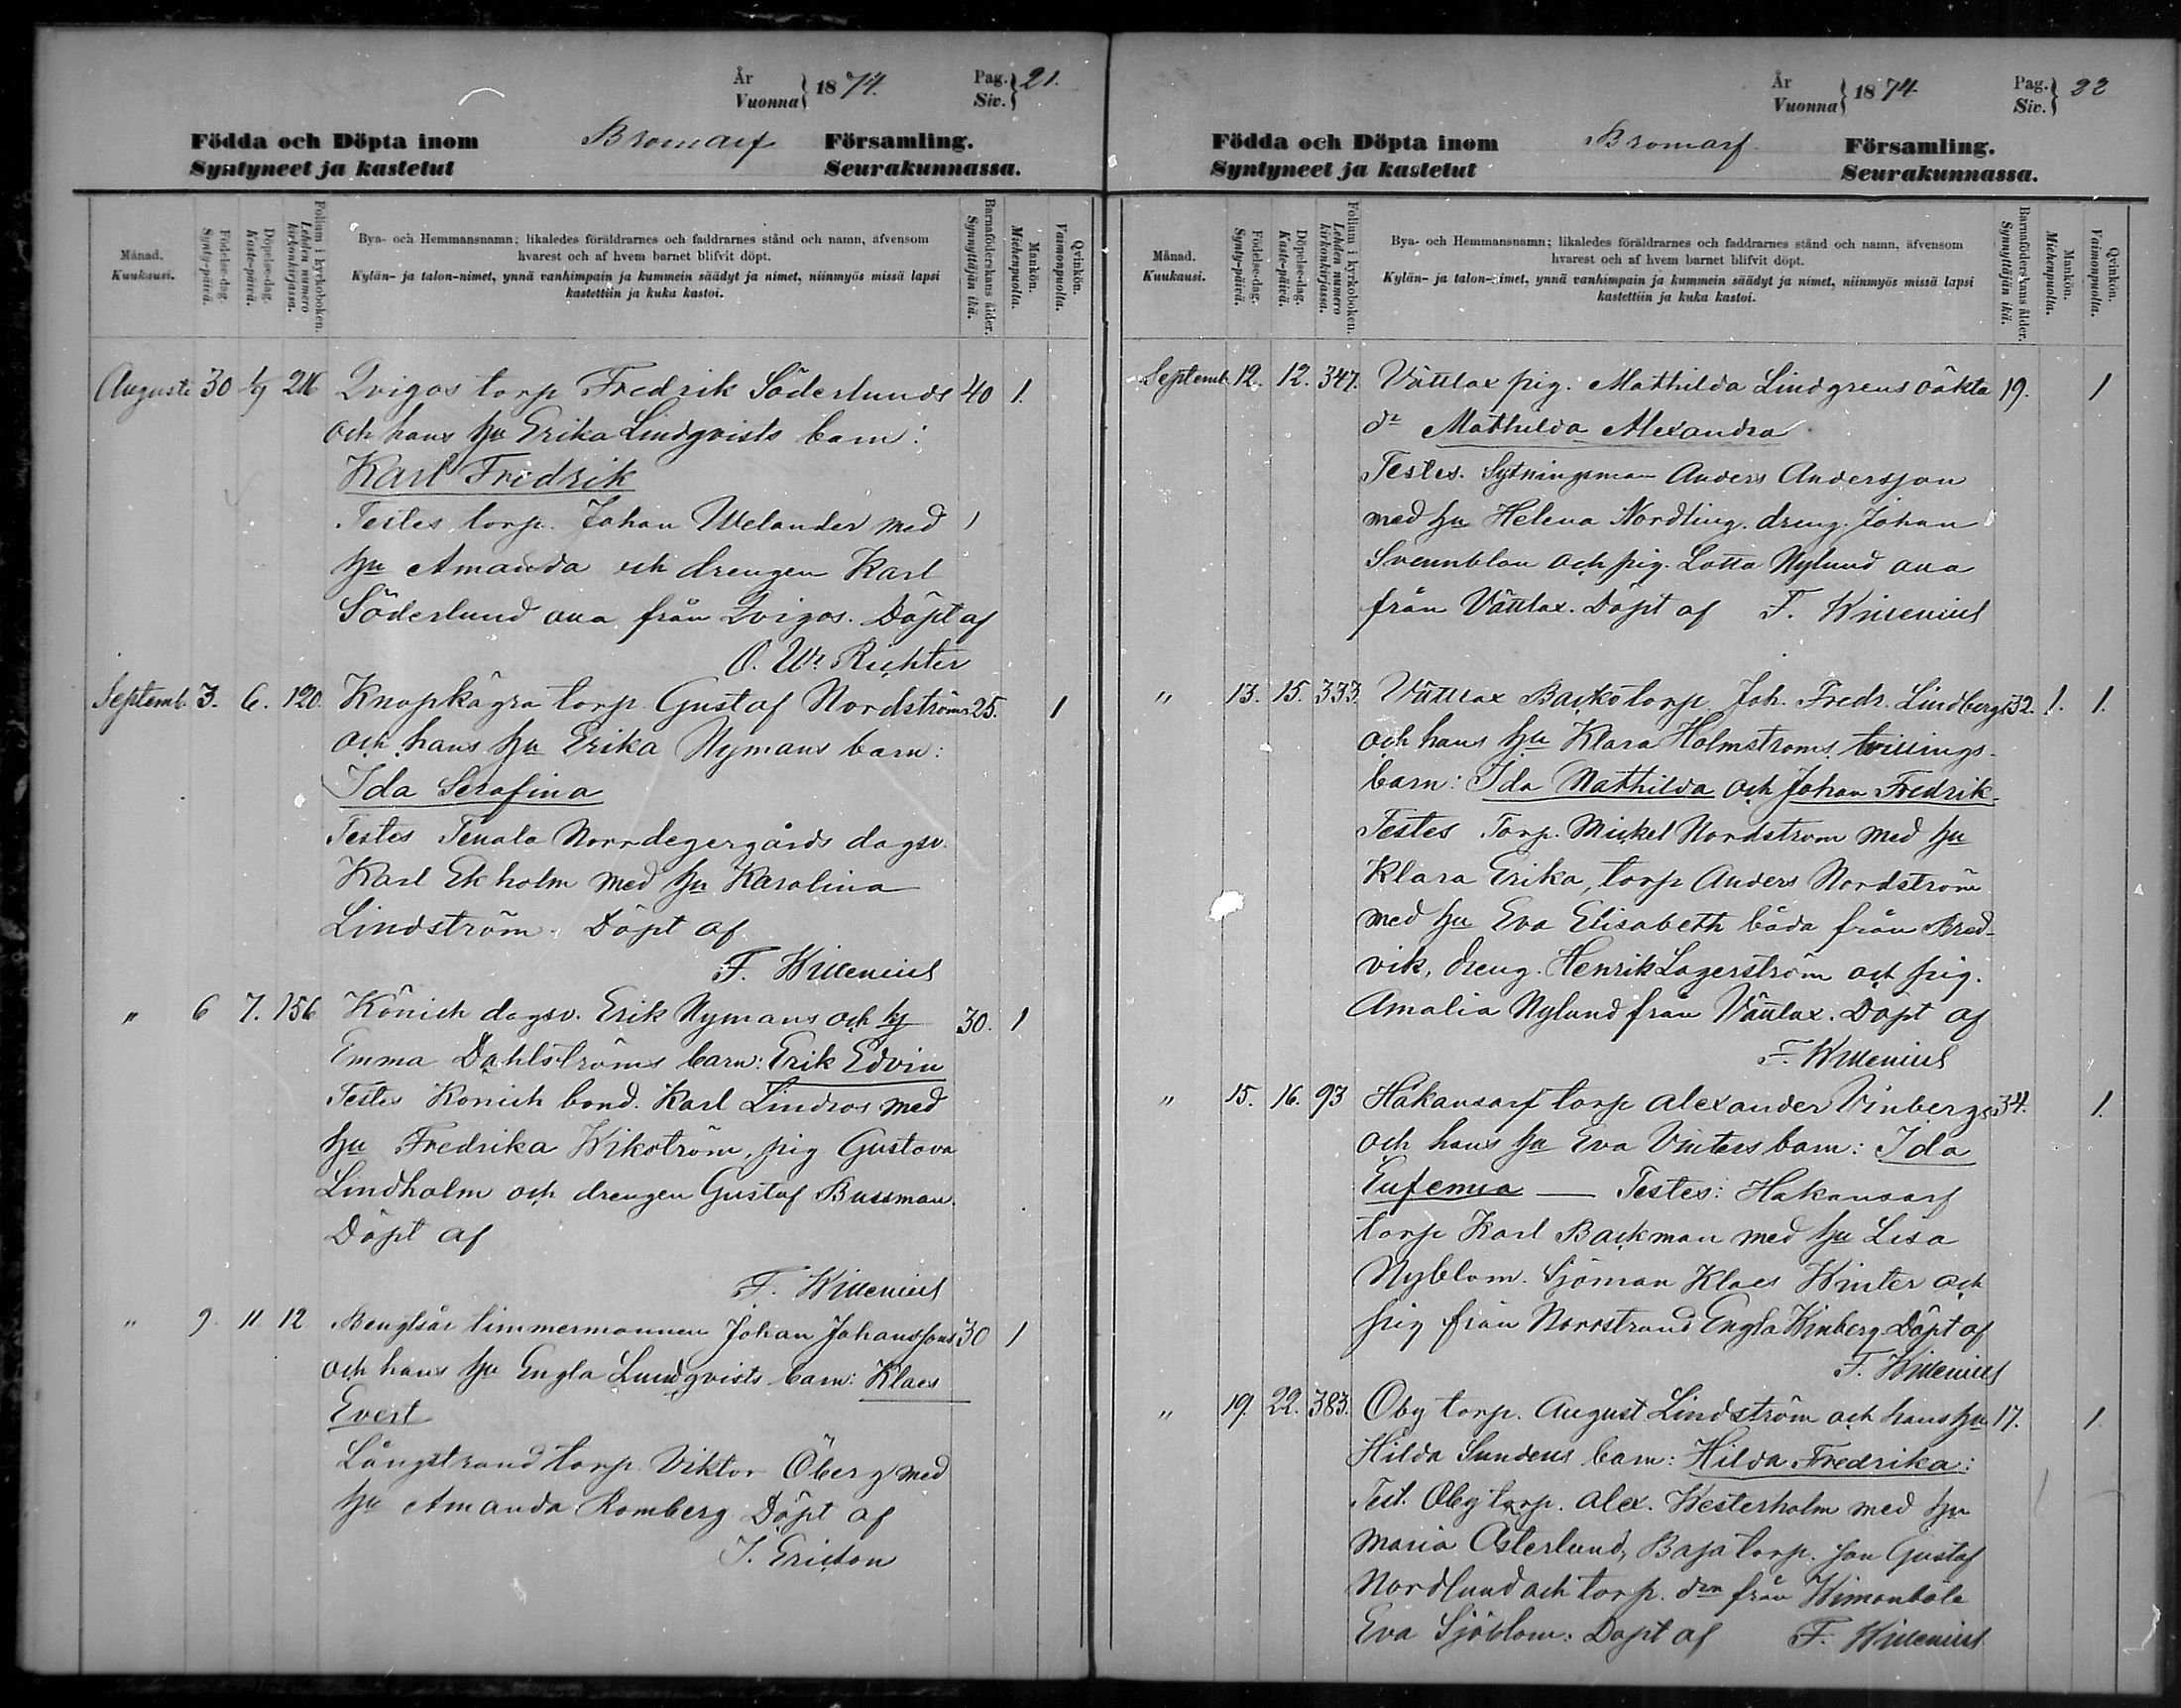 År
Vuonna } 1874. Pag.
Siv. } 21.
Födda och Döpta inom Bromarf Församling.
Syntyneet ja kastetut Seurakunnassa.
Månad.
Kuukausi.
Födelse-dag.
Synty-päivä.
Döpelse-dag.
Kaste-päivä.
Folium i kyrkoboken.
Lehden numero
kirkonkirjassa.
Bya- och Hemmansnamn; likaledes föräldrarnes och faddrarnes stånd och namn, äfvensom
hvarest och af hvem barnet blifvit döpt.
Kylän- ja talon-nimet, ynnä vanhimpain ja kummein säädyt ja nimet, niinmyös missä lapsi
kastettiin ja kuka kastoi.
Barnaföderskans ålder.
Synnyttäjän ikä.
Mankön.
Miehenpuolta.
Qvinkön.
Vaimonpuolta.
Augusti 30 216 Qvigos torp Fredrik Söderlunds 40 1.
och hans hu Erika Lindqvists barn:
Karl Fredrik
Testes torp. Johan Welander med 1
hu Amanda och drengen Karl
Söderlund ana från Qvigos. Döpt af
O. W. Richter
Septemb 3. 6. 120. Knapkägra torp. Gustaf Nordströms 25. 1
och hans hu Erika Nymans barn:
Ida Serafina
Testes Tenala Norrdegergårds dagsv.
Karl Ekholm med hu Karolina
Lindström. Döpt af
F. Willenius
" 6 7. 156 Könich dagsv. Erik Nymans och 30. 1
Emma Dahlströms barn: Erik Edvin
Testes Könich bond. Karl Lindros med
hu Fredrika Wikström, pig Gustava
Lindholm och drengen Gustaf Bussman.
Döpt af
F. Willenius
" 9. 11 12 Bengtsår timmermannen Johan Johanssons 30 1
och hans hu Engla Lundqvists barn: Klaes
Evert
Långstrand torp. Viktor Öberg med
hu Amanda Romberg Döpt af
J. Ericson
År
Vuonna } 1874 Pag.
Siv. } 22
Födda och Döpta inom Bromarf Församling.
Syntyneet ja kastetut Seurakunnassa.
Månad.
Kuukausi.
Födelse-dag.
Synty-päivä.
Döpelse-dag.
Kaste-päivä.
Folium i kyrkoboken.
Lehden numero
kirkonkirjassa.
Bya- och Hemmansnamn; likaledes föräldrarnes och faddrarnes stånd och namn, äfvensom
hvarest och af hvem barnet blifvit döpt.
Kylän- ja talon-nimet, ynnä vanhimpain ja kummein säädyt ja nimet, niinmyös missä lapsi
kastettiin ja kuka kastoi.
Barnaföderskans ålder.
Synnyttäjän ikä.
Mankön.
Miehenpuolta.
Qvinkön.
Vaimonpuolta.
Septemb. 12. 12. 347. Vättlax pig. Mathilda Lindgrens oäkta 19. 1
dr Mathilda Alexandra
Testes. Sytningsman Anders Andersson
med hu Helena Nordling. dreng. Johan
Svennblan och pig. Lotta Nylund ana
från Vättlax. Döpt af F. Willenius
" 13. 15. 333. Vättlax Backötorp. Joh. Fredr. Lindbergs 32. 1. 1.
och hans hu Klara Holmströms tvillings-
barn: Ida Mathilda och Johan Fredrik.
Testes Torp. Mickel Nordström med hu
Klara Erika, torp Anders Nordström
med hu Eva Elisabeth båda från Bred-
vik, dreng. Henrik Lagerström och pig.
Amalia Nylund från Vättlax. Döpt af
F. Willenius
" 15. 16. 93 Håkansarf torp Alexander Vinbergs 34. 1.
och hans hu Eva Vinters barn: Ida
Eufemia — Testes: Håkansarf
torp Karl Backman med hu Lisa
Nyblom. Sjöman Klaes Winter och
pig från Norrstrand Engla Winberg Döpt af
F. Willenius
" 19. 22. 383. Öby torp. August Lindström och hans hu 17. 1.
Hilda Sundens barn: Hilda Fredrika:
Test. Öby torp. Alex. Westerholm med hu
Maria Österlund, torp. son Gustaf
Nordlund och torp. drn från Wimonböle
Eva Sjöblom: Döpt af F. Willenius